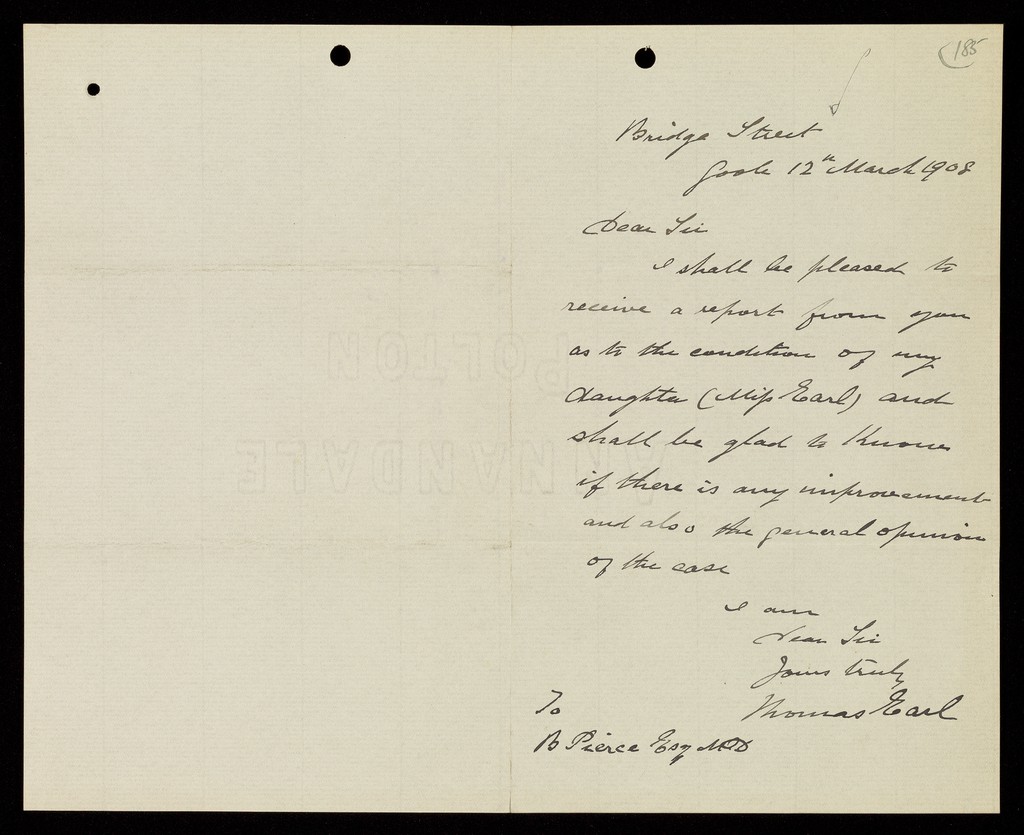 185
Bridge Street
Goole 12th March 1908
Dear Sir
I shall be pleased to
receive a report from you
as to the condition of my
daughter (Miss Earl) and
shall be glad to know
if there is any improvement
and also the general opinion
of the case
I am
Dear Sir
Yours truly
Thomas Earl
To
B Pierce Esq MD
POLTON
ANNANDALE